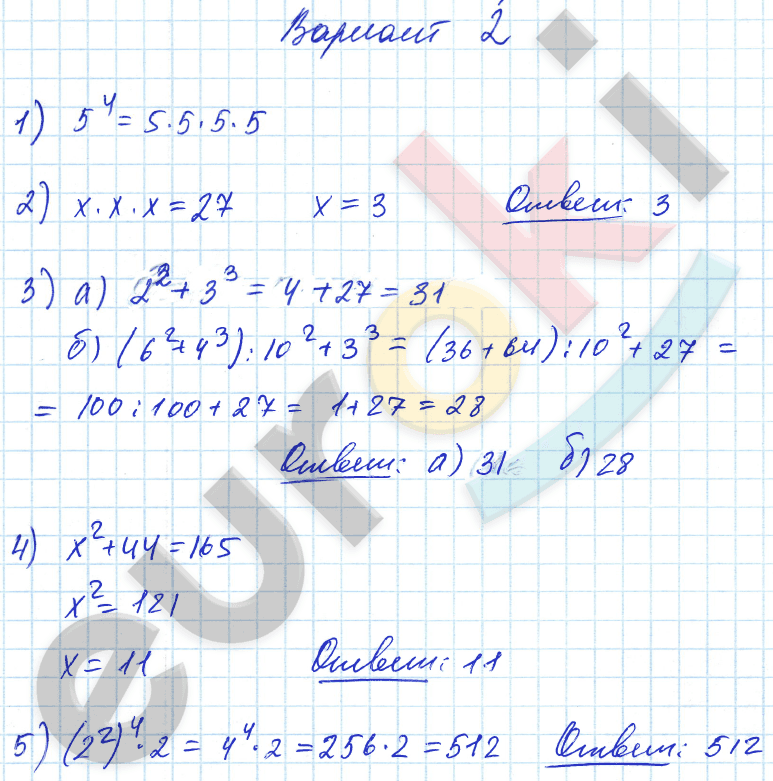 Вариант 2
1) 5⁴ = 5·5·5·5
2) x·x·x = 27 x = 3 Ответ: 3
3) а) 2² + 3³ = 4 + 27 = 31
б) (6² + 4³) : 10² + 3³ = (36 + 64) : 10² + 27 =
= 100 : 100 + 27 = 1 + 27 = 28
Ответ: а) 31 б) 28
4) x² + 44 = 165
x² = 121
x = 11 Ответ: 11
5) (2²)⁴ · 2 = 4⁴ · 2 = 256 · 2 = 512 Ответ: 512
euroki